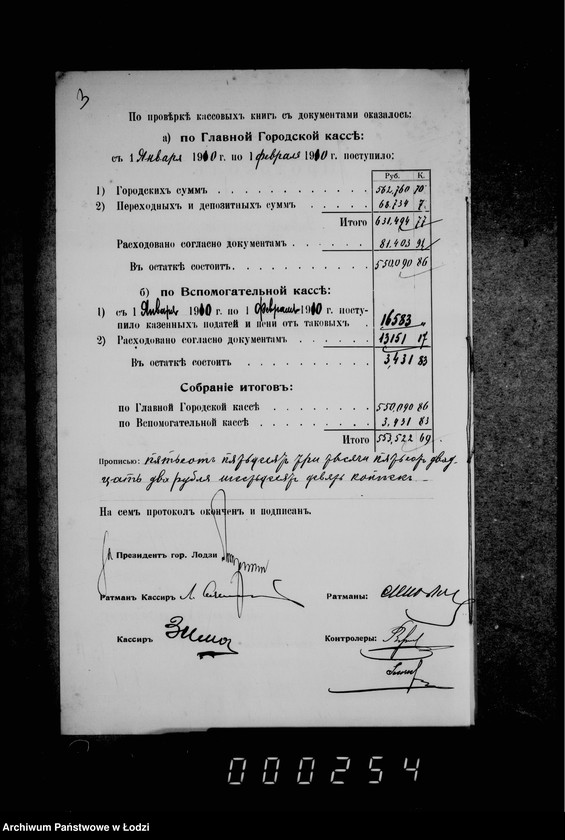 3
По провѣркѣ кассовыхъ книгъ съ документами оказалось:
а) по Главной Городской кассѣ:
съ 1 Января 1910 г. по 1 февраля 1910 г. поступило:
Руб. К.
1) Городскихъ суммъ 562,760 70
2) Переходныхъ и депозитныхъ суммъ 68.734 7
Итого 631,494 77
Расходовано согласно документамъ 81.403 91
Въ остаткѣ состоитъ 550,090 86
б) по Вспомогательной кассѣ:
1) съ 1 Января 1910 г. по 1 Февраля 1910 г. посту-
пило казенныхъ податей и пени отъ таковыхъ 16583 „
2) Расходовано согласно документамъ 13151 17
Въ остаткѣ состоитъ 3,431 83
Собраніе итоговъ:
по Главной Городской кассѣ 550,090 86
по Вспомогательной кассѣ 3,431 83
Итого 553,522 69
Прописью: пятьсотъ пятьдесятъ три тысячи пятьсотъ двад-
цать два рубля шестьдесятъ девять копѣекъ
На семъ протоколъ оконченъ и подписанъ.
Президентъ гор. Лодзи
Ратманъ Кассиръ
Ратманы:
Кассиръ
Контролеры:
000254
Archiwum Państwowe w Łodzi